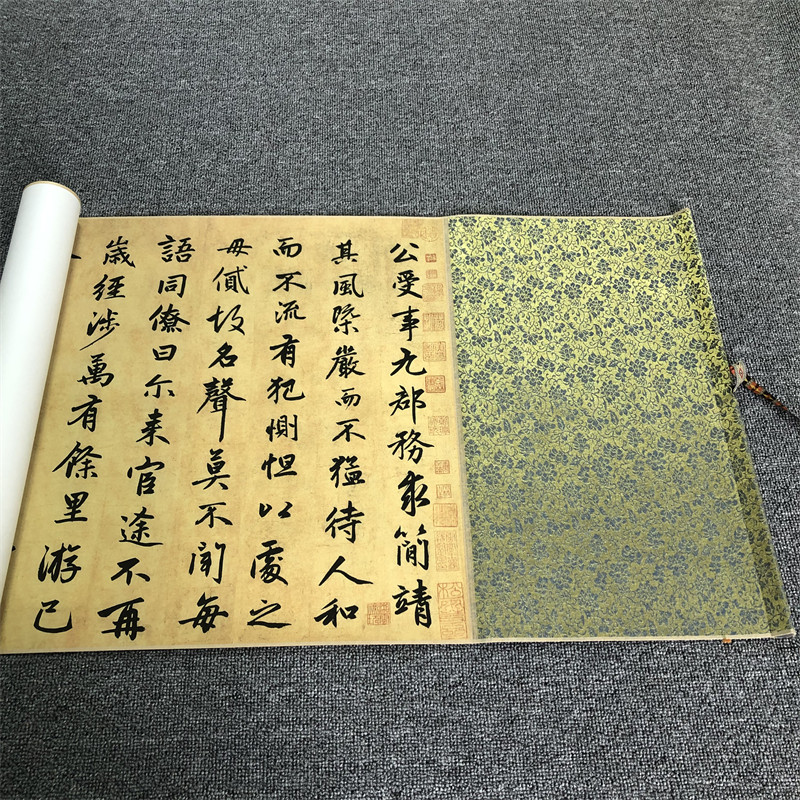 公受事九郡務求簡靖
其風檃嚴而不猛待人和
而不流有犯惻怛以處之
毋貳故名聲莫不聞每
語同僚曰尒来宦途不再
歲經涉萬有餘里游已